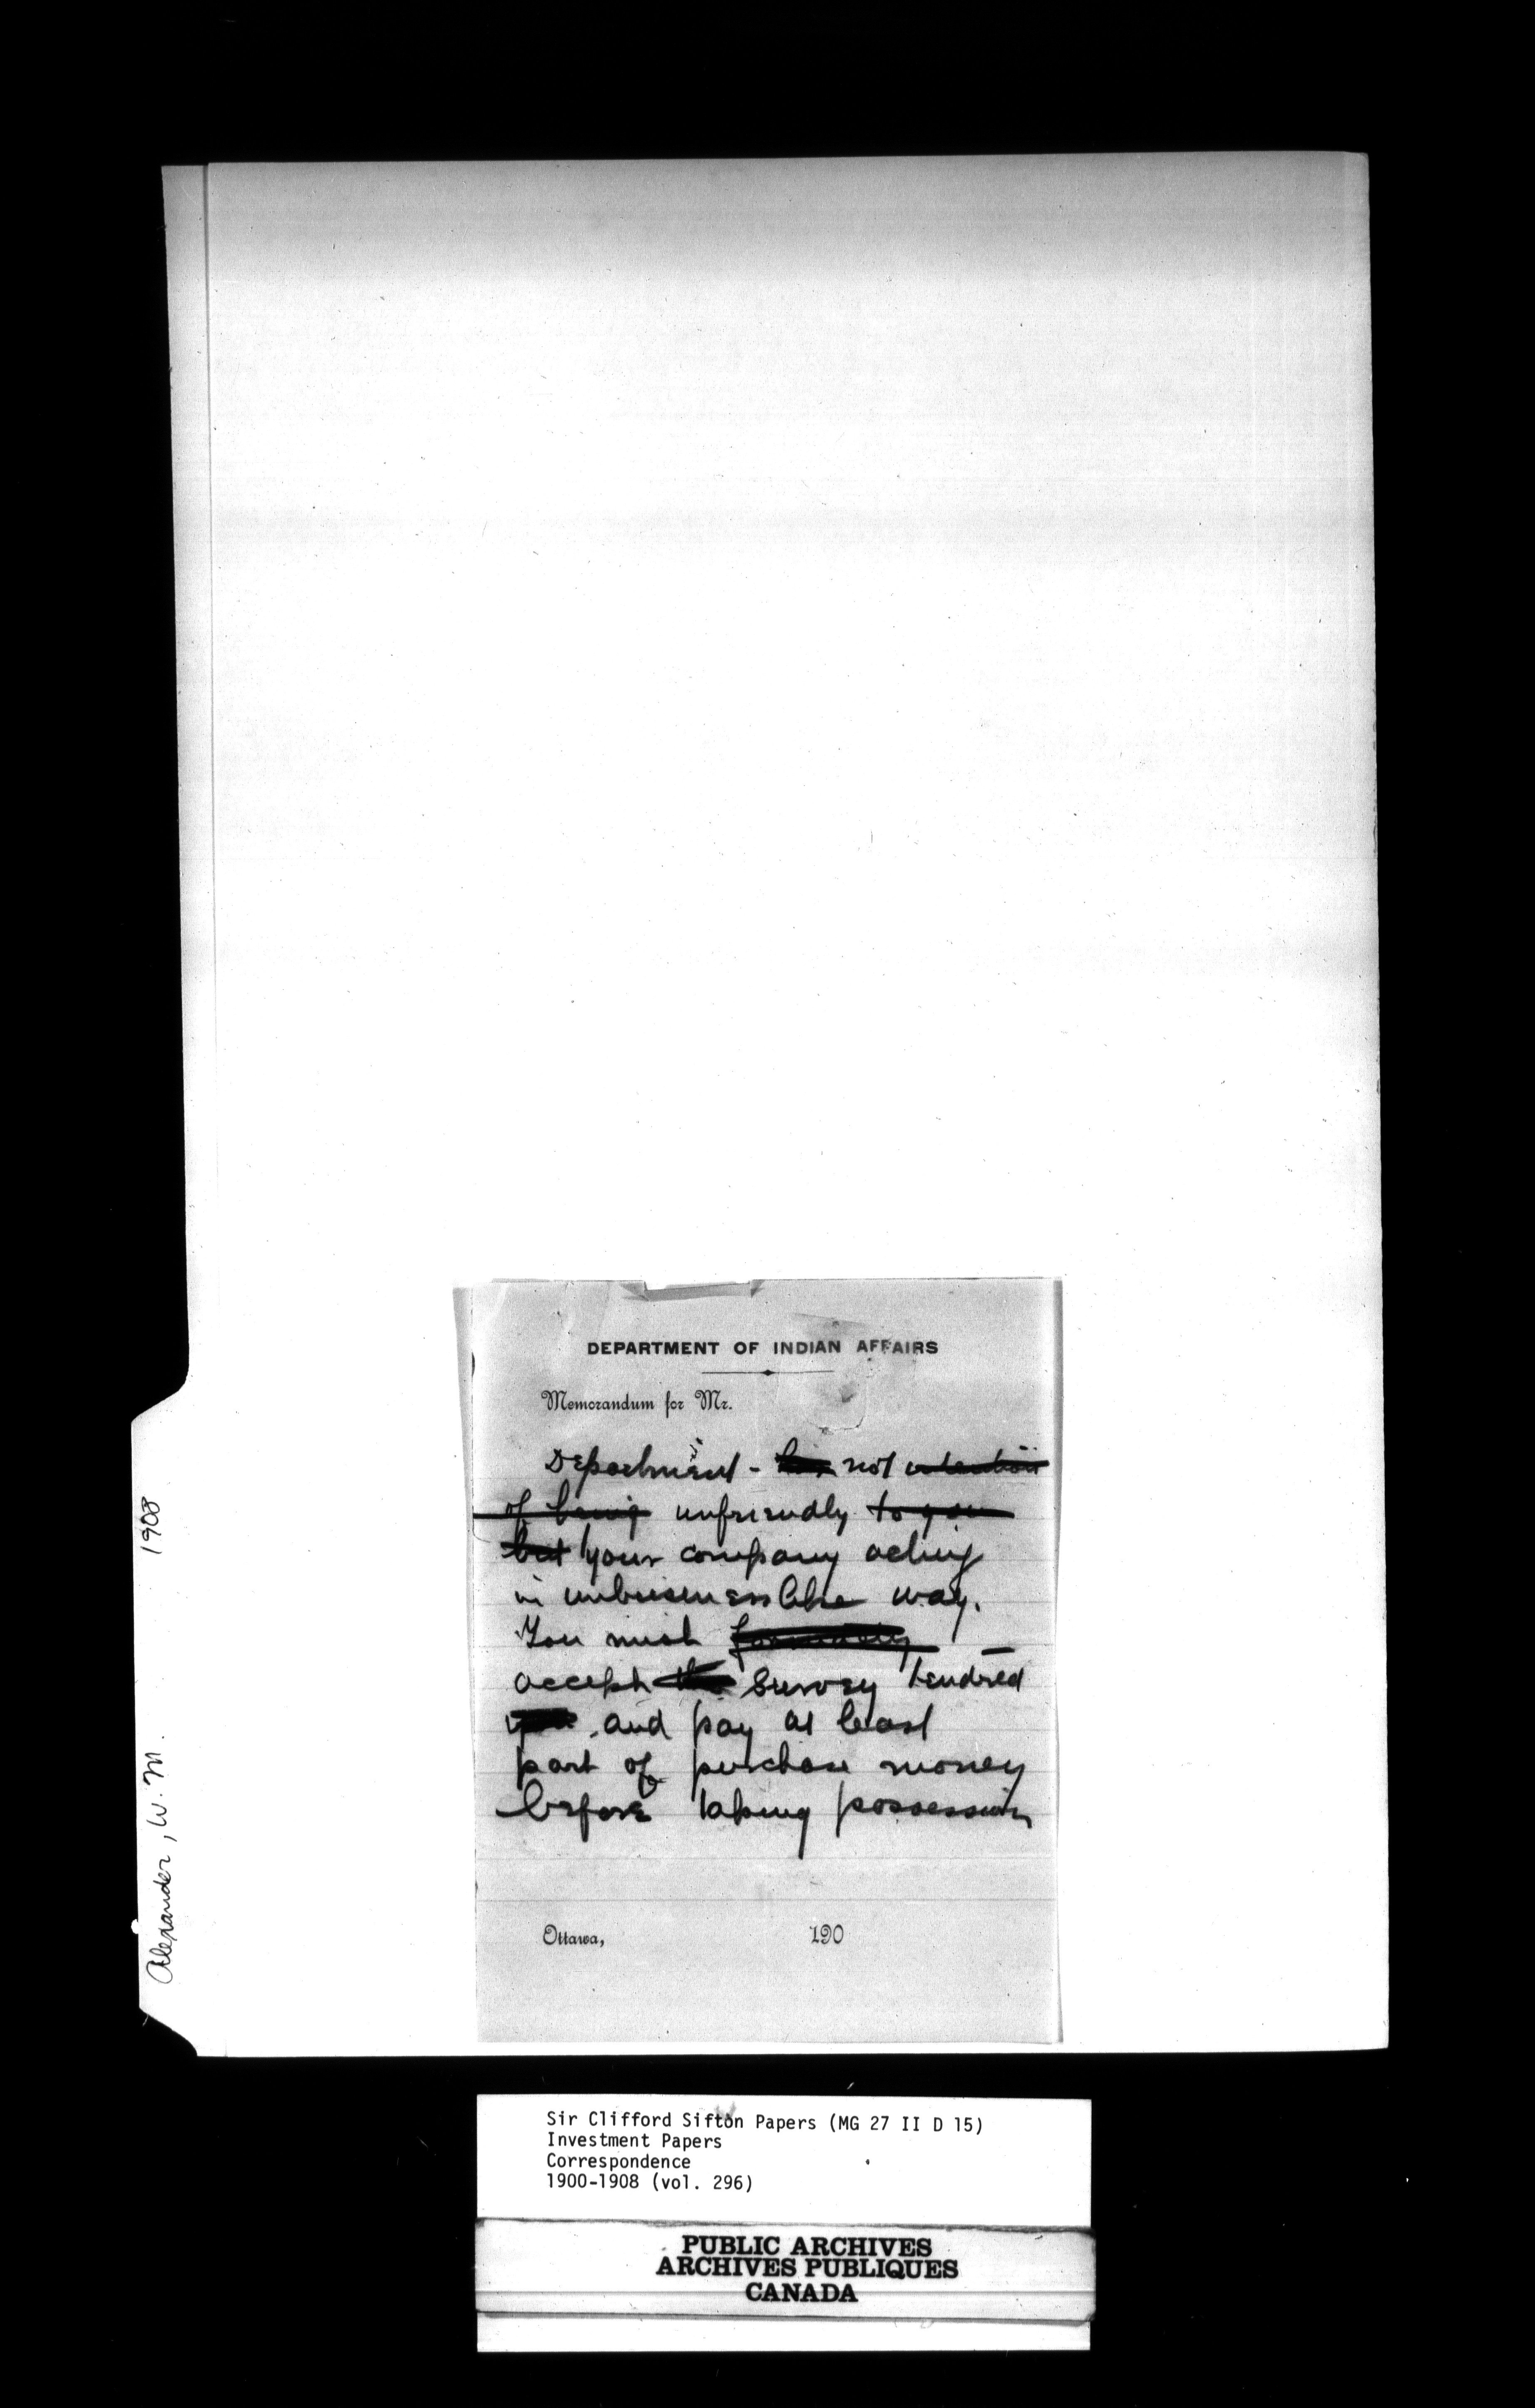 DEPARTMENT OF INDIAN AFFAIRS
Memorandum for Mr.
Department - not intention
of being unfriendly to you
but your company acting
in unbusinesslike way.
You must formally
accept the survey tendred
you and pay at least
part of purchase money
before taking possession
Ottawa, 190
Alexander, W. M. 1908
Sir Clifford Sifton Papers (MG 27 II D 15)
Investment Papers
Correspondence
1900-1908 (vol. 296)
PUBLIC ARCHIVES
ARCHIVES PUBLIQUES
CANADA